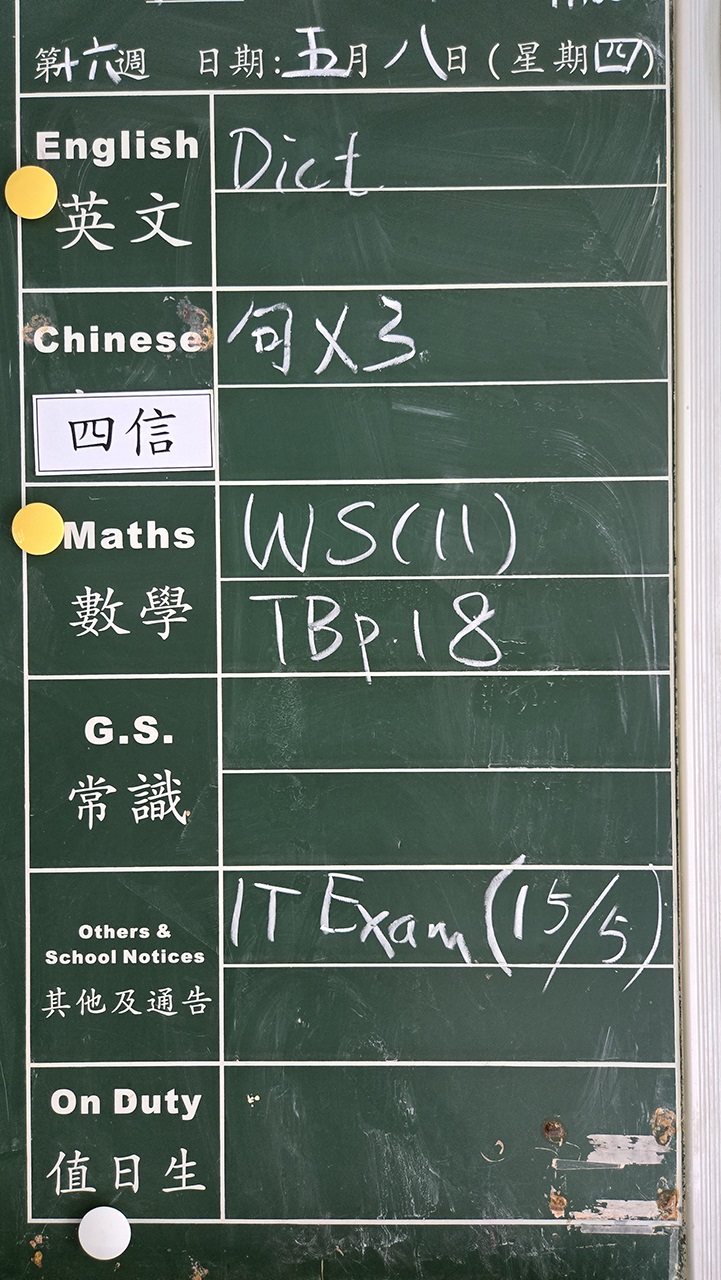 第十六週 日期:五月八日(星期四)
English
英文
Dict
Chinese
四信
句X3
Maths
數學
WS(11)
TBp.18
G.S.
常識
Others &
School Notices
其他及通告
IT Exam (15/5)
On Duty
值日生